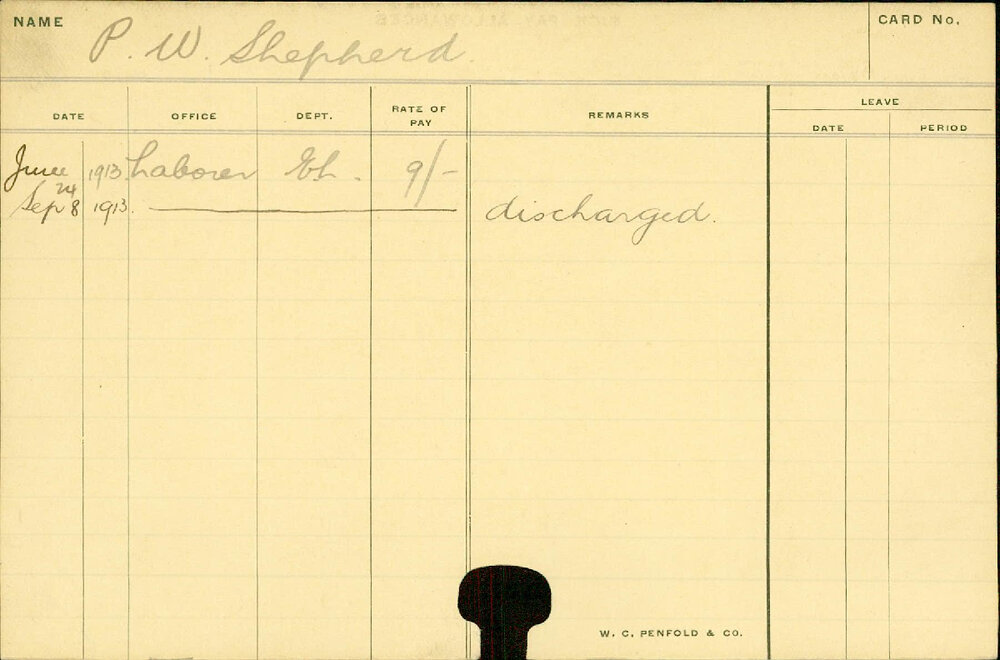 NAME P. W. Shepherd. CARD No.
DATE OFFICE DEPT. RATE OF PAY REMARKS LEAVE
DATE PERIOD
June 24 1913. Laborer 9/-
Sep 8 1913. discharged.
W. C. PENFOLD & CO.